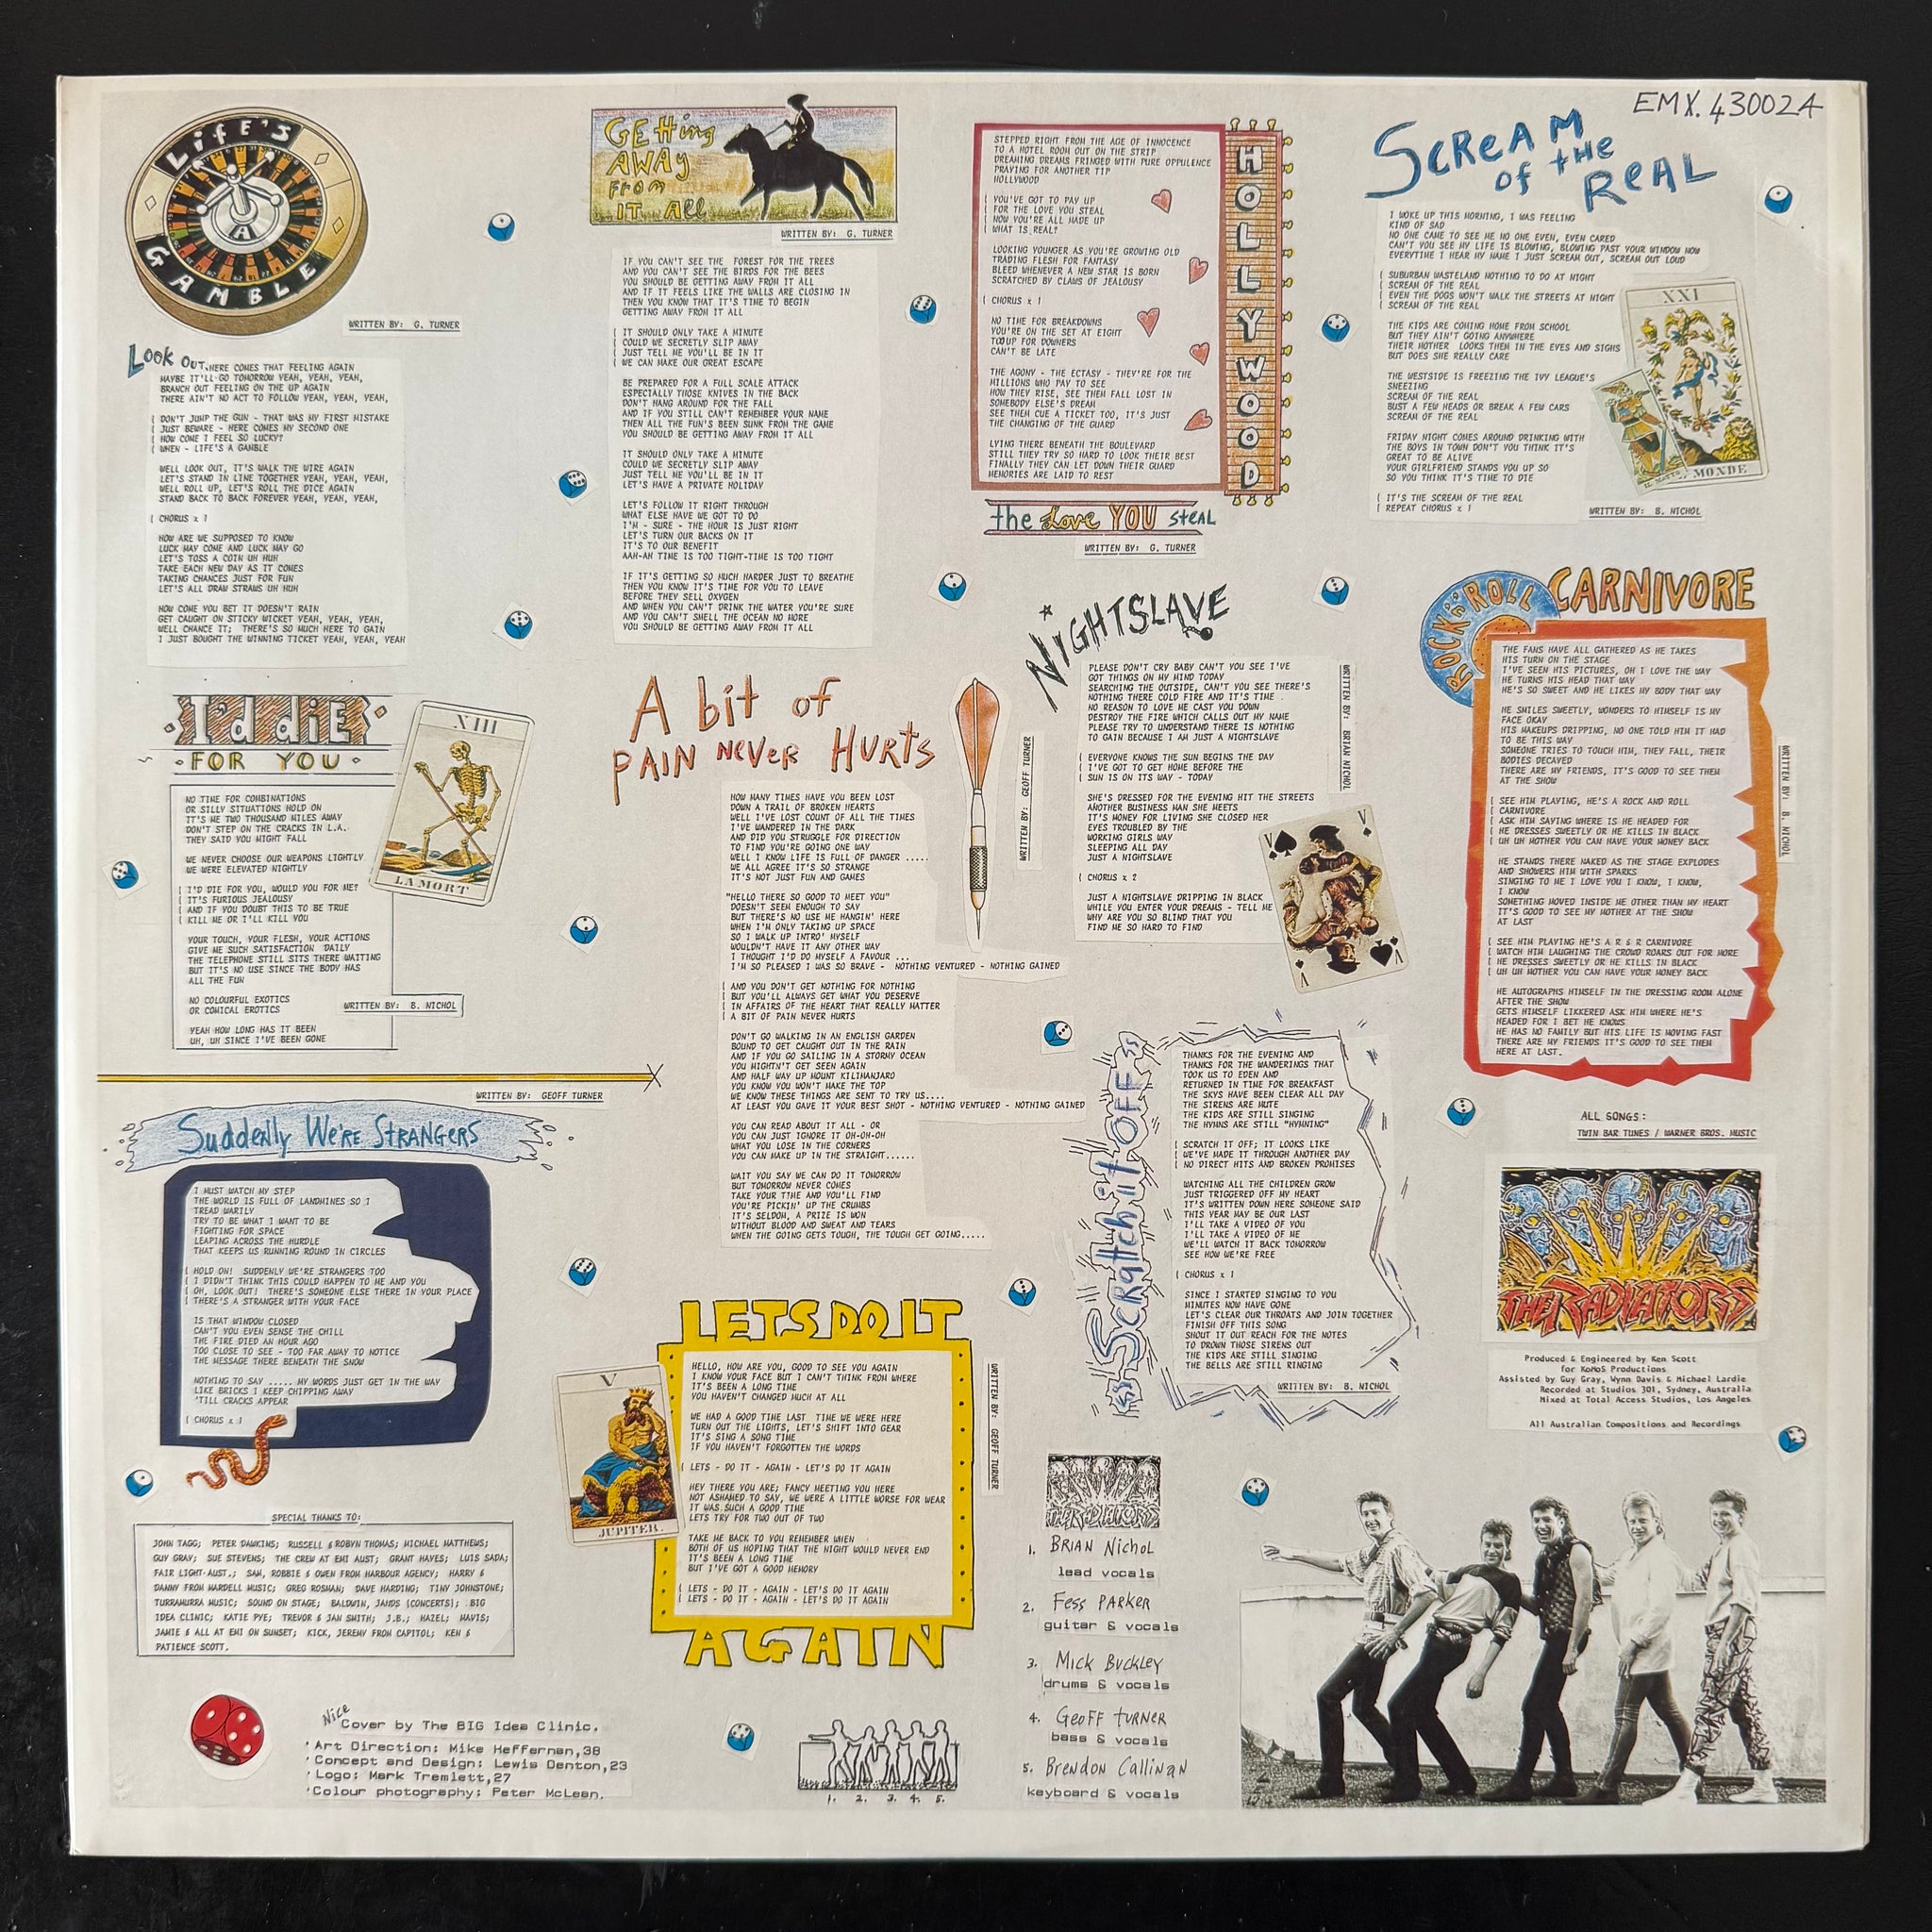 EMX. 430024
LIFE'S
A
GAMBLE
WRITTEN BY: G. TURNER
Look OUT, HERE COMES THAT FEELING AGAIN
MAYBE IT'LL GO TOMORROW YEAH, YEAH, YEAH,
BRANCH OUT FEELING ON THE UP AGAIN
THERE AIN'T NO ACT TO FOLLOW YEAH, YEAH, YEAH,
( DON'T JUMP THE GUN - THAT WAS MY FIRST MISTAKE
( JUST BEWARE - HERE COMES MY SECOND ONE
( HOW COME I FEEL SO LUCKY?
( WHEN - LIFE'S A GAMBLE
WELL LOOK OUT, IT'S WALK THE WIRE AGAIN
LET'S STAND IN LINE TOGETHER YEAH, YEAH, YEAH,
WELL ROLL UP, LET'S ROLL THE DICE AGAIN
STAND BACK TO BACK FOREVER YEAH, YEAH, YEAH,
( CHORUS x 1
HOW ARE WE SUPPOSED TO KNOW
LUCK MAY COME AND LUCK MAY GO
LET'S TOSS A COIN UH HUH
TAKE EACH NEW DAY AS IT COMES
TAKING CHANCES JUST FOR FUN
LET'S ALL DRAW STRAWS UH HUH
HOW COME YOU BET IT DOESN'T RAIN
GET CAUGHT ON STICKY WICKET YEAH, YEAH, YEAH,
WELL CHANCE IT; THERE'S SO MUCH HERE TO GAIN
I JUST BOUGHT THE WINNING TICKET YEAH, YEAH, YEAH
GETTing
AWAY
FROM
IT All
WRITTEN BY: G. TURNER
IF YOU CAN'T SEE THE FOREST FOR THE TREES
AND YOU CAN'T SEE THE BIRDS FOR THE BEES
YOU SHOULD BE GETTING AWAY FROM IT ALL
AND IF IT FEELS LIKE THE WALLS ARE CLOSING IN
THEN YOU KNOW THAT IT'S TIME TO BEGIN
GETTING AWAY FROM IT ALL
( IT SHOULD ONLY TAKE A MINUTE
( COULD WE SECRETLY SLIP AWAY
( JUST TELL ME YOU'LL BE IN IT
( WE CAN MAKE OUR GREAT ESCAPE
BE PREPARED FOR A FULL SCALE ATTACK
ESPECIALLY THOSE KNIVES IN THE BACK
DON'T HANG AROUND FOR THE FALL
AND IF YOU STILL CAN'T REMEMBER YOUR NAME
THEN ALL THE FUN'S BEEN SUNK FROM THE GAME
YOU SHOULD BE GETTING AWAY FROM IT ALL
IT SHOULD ONLY TAKE A MINUTE
COULD WE SECRETLY SLIP AWAY
JUST TELL ME YOU'LL BE IN IT
LET'S HAVE A PRIVATE HOLIDAY
LET'S FOLLOW IT RIGHT THROUGH
WHAT ELSE HAVE WE GOT TO DO
I'M - SURE - THE HOUR IS JUST RIGHT
LET'S TURN OUR BACKS ON IT
IT'S TO OUR BENEFIT
AAH-AH TIME IS TOO TIGHT-TIME IS TOO TIGHT
IF IT'S GETTING SO MUCH HARDER JUST TO BREATHE
THEN YOU KNOW IT'S TIME FOR YOU TO LEAVE
BEFORE THEY SELL OXYGEN
AND WHEN YOU CAN'T DRINK THE WATER YOU'RE SURE
AND YOU CAN'T SHELL THE OCEAN NO MORE
YOU SHOULD BE GETTING AWAY FROM IT ALL
STEPPED RIGHT FROM THE AGE OF INNOCENCE
TO A HOTEL ROOM OUT ON THE STRIP
DREAMING DREAMS FRINGED WITH PURE OPPULENCE
PRAYING FOR ANOTHER TIP
HOLLYWOOD
( YOU'VE GOT TO PAY UP
( FOR THE LOVE YOU STEAL
( NOW YOU'RE ALL MADE UP
( WHAT IS REAL?
LOOKING YOUNGER AS YOU'RE GROWING OLD
TRADING FLESH FOR FANTASY
BLEED WHENEVER A NEW STAR IS BORN
SCRATCHED BY CLAWS OF JEALOUSY
( CHORUS x 1
NO TIME FOR BREAKDOWNS
YOU'RE ON THE SET AT EIGHT
TOOUP FOR DOWNERS
CAN'T BE LATE
THE AGONY - THE ECTASY - THEY'RE FOR THE
MILLIONS WHO PAY TO SEE
HOW THEY RISE, SEE THEM FALL LOST IN
SOMEBODY ELSE'S DREAM
SEE THEM CUE A TICKET TOO, IT'S JUST
THE CHANGING OF THE GUARD
LYING THERE BENEATH THE BOULEVARD
STILL THEY TRY SO HARD TO LOOK THEIR BEST
FINALLY THEY CAN LET DOWN THEIR GUARD
MEMORIES ARE LAID TO REST
HOLLYWOOD
the Love YOU STEAL
WRITTEN BY: G. TURNER
SCREAM
of THE
REAL
I WOKE UP THIS MORNING, I WAS FEELING
KIND OF SAD
NO ONE CAME TO SEE ME NO ONE EVEN, EVEN CARED
CAN'T YOU SEE MY LIFE IS BLOWING, BLOWING PAST YOUR WINDOW NOW
EVERYTIME I HEAR MY NAME I JUST SCREAM OUT, SCREAM OUT LOUD
( SUBURBAN WASTELAND NOTHING TO DO AT NIGHT
( SCREAM OF THE REAL
( EVEN THE DOGS WON'T WALK THE STREETS AT NIGHT
( SCREAM OF THE REAL
THE KIDS ARE COMING HOME FROM SCHOOL
BUT THEY AIN'T GOING ANYWHERE
THEIR MOTHER LOOKS THEM IN THE EYES AND SIGHS
BUT DOES SHE REALLY CARE
THE WESTSIDE IS FREEZING THE IVY LEAGUE'S
SNEEZING
SCREAM OF THE REAL
BUST A FEW HEADS OR BREAK A FEW CARS
SCREAM OF THE REAL
FRIDAY NIGHT COMES AROUND DRINKING WITH
THE BOYS IN TOWN DON'T YOU THINK IT'S
GREAT TO BE ALIVE
YOUR GIRLFRIEND STANDS YOU UP SO
SO YOU THINK IT'S TIME TO DIE
( IT'S THE SCREAM OF THE REAL
( REPEAT CHORUS x 1
XXI
MONDE
WRITTEN BY: B. NICHOL
I'd diE
FOR YOU
XIII
LA MORT
NO TIME FOR COMBINATIONS
OR SILLY SITUATIONS HOLD ON
IT'S ME TWO THOUSAND MILES AWAY
DON'T STEP ON THE CRACKS IN L.A.
THEY SAID YOU MIGHT FALL
WE NEVER CHOOSE OUR WEAPONS LIGHTLY
WE WERE ELEVATED NIGHTLY
( I'D DIE FOR YOU, WOULD YOU FOR ME?
( IT'S FURIOUS JEALOUSY
( AND IF YOU DOUBT THIS TO BE TRUE
( KILL ME OR I'LL KILL YOU
YOUR TOUCH, YOUR FLESH, YOUR ACTIONS
GIVE ME SUCH SATISFACTION DAILY
THE TELEPHONE STILL SITS THERE WAITING
BUT IT'S NO USE SINCE THE BODY HAS
ALL THE FUN
NO COLOURFUL EXOTICS
OR COMICAL EROTICS
WRITTEN BY: B. NICHOL
YEAH HOW LONG HAS IT BEEN
UH, UH SINCE I'VE BEEN GONE
A bit of
PAIN NEVER HURTS
WRITTEN BY: GEOFF TURNER
HOW MANY TIMES HAVE YOU BEEN LOST
DOWN A TRAIL OF BROKEN HEARTS
WELL I'VE LOST COUNT OF ALL THE TIMES
I'VE WANDERED IN THE DARK
AND DID YOU STRUGGLE FOR DIRECTION
TO FIND YOU'RE GOING ONE WAY
WELL I KNOW LIFE IS FULL OF DANGER .....
WE ALL AGREE IT'S SO STRANGE
IT'S NOT JUST FUN AND GAMES
"HELLO THERE SO GOOD TO MEET YOU"
DOESN'T SEEM ENOUGH TO SAY
BUT THERE'S NO USE ME HANGIN' HERE
WHEN I'M ONLY TAKING UP SPACE
SO I WALK UP INTRO' MYSELF
WOULDN'T HAVE IT ANY OTHER WAY
I THOUGHT I'D DO MYSELF A FAVOUR ...
I'M SO PLEASED I WAS SO BRAVE - NOTHING VENTURED - NOTHING GAINED
( AND YOU DON'T GET NOTHING FOR NOTHING
( BUT YOU'LL ALWAYS GET WHAT YOU DESERVE
( IN AFFAIRS OF THE HEART THAT REALLY MATTER
( A BIT OF PAIN NEVER HURTS
DON'T GO WALKING IN AN ENGLISH GARDEN
BOUND TO GET CAUGHT OUT IN THE RAIN
AND IF YOU GO SAILING IN A STORMY OCEAN
YOU MIGHTN'T GET SEEN AGAIN
AND HALF WAY UP MOUNT KILIMANJARO
YOU KNOW YOU WON'T MAKE THE TOP
WE KNOW THESE THINGS ARE SENT TO TRY US....
AT LEAST YOU GAVE IT YOUR BEST SHOT - NOTHING VENTURED - NOTHING GAINED
YOU CAN READ ABOUT IT ALL - OR
YOU CAN JUST IGNORE IT OH-OH-OH
WHAT YOU LOSE IN THE CORNERS
YOU CAN MAKE UP IN THE STRAIGHT......
WAIT YOU SAY WE CAN DO IT TOMORROW
BUT TOMORROW NEVER COMES
TAKE YOUR TIME AND YOU'LL FIND
YOU'RE PICKIN' UP THE CRUMBS
IT'S SELDOM, A PRIZE IS WON
WITHOUT BLOOD AND SWEAT AND TEARS
WHEN THE GOING GETS TOUGH, THE TOUGH GET GOING.....
NIGHTSLAVE
WRITTEN BY: BRIAN NICHOL
PLEASE DON'T CRY BABY CAN'T YOU SEE I'VE
GOT THINGS ON MY MIND TODAY
SEARCHING THE OUTSIDE, CAN'T YOU SEE THERE'S
NOTHING THERE COLD FIRE AND IT'S TIME
NO REASON TO LOVE HE CAST YOU DOWN
DESTROY THE FIRE WHICH CALLS OUT MY NAME
PLEASE TRY TO UNDERSTAND THERE IS NOTHING
TO GAIN BECAUSE I AM JUST A NIGHTSLAVE
( EVERYONE KNOWS THE SUN BEGINS THE DAY
( I'VE GOT TO GET HOME BEFORE THE
( SUN IS ON ITS WAY - TODAY
SHE'S DRESSED FOR THE EVENING HIT THE STREETS
ANOTHER BUSINESS MAN SHE MEETS
IT'S MONEY FOR LIVING SHE CLOSED HER
EYES TROUBLED BY THE
WORKING GIRLS WAY
SLEEPING ALL DAY
JUST A NIGHTSLAVE
( CHORUS x 2
JUST A NIGHTSLAVE DRIPPING IN BLACK
WHILE YOU ENTER YOUR DREAMS - TELL ME
WHY ARE YOU SO BLIND THAT YOU
FIND ME SO HARD TO FIND
V
V
V
ROCK 'N' ROLL CARNIVORE
WRITTEN BY: B. NICHOL
THE FANS HAVE ALL GATHERED AS HE TAKES
HIS TURN ON THE STAGE
I'VE SEEN HIS PICTURES, OH I LOVE THE WAY
HE TURNS HIS HEAD THAT WAY
HE'S SO SWEET AND HE LIKES MY BODY THAT WAY
HE SMILES SWEETLY, WONDERS TO HIMSELF IS MY
FACE OKAY
HIS MAKEUPS DRIPPING, NO ONE TOLD HIM IT HAD
TO BE THIS WAY
SOMEONE TRIES TO TOUCH HIM, THEY FALL, THEIR
BODIES DECAYED
THERE ARE MY FRIENDS, IT'S GOOD TO SEE THEM
AT THE SHOW
( SEE HIM PLAYING, HE'S A ROCK AND ROLL
( CARNIVORE
( ASK HIM SAYING WHERE IS HE HEADED FOR
( HE DRESSES SWEETLY OR HE KILLS IN BLACK
( UH UH MOTHER YOU CAN HAVE YOUR MONEY BACK
HE STANDS THERE NAKED AS THE STAGE EXPLODES
AND SHOWERS HIM WITH SPARKS
SINGING TO ME I LOVE YOU I KNOW, I KNOW,
I KNOW
SOMETHING MOVED INSIDE ME OTHER THAN MY HEART
IT'S GOOD TO SEE MY MOTHER AT THE SHOW
AT LAST
( SEE HIM PLAYING HE'S A R & R CARNIVORE
( WATCH HIM LAUGHING THE CROWD ROARS OUT FOR MORE
( HE DRESSES SWEETLY OR HE KILLS IN BLACK
( UH UH MOTHER YOU CAN HAVE YOUR MONEY BACK
HE AUTOGRAPHS HIMSELF IN THE DRESSING ROOM ALONE
AFTER THE SHOW
GETS HIMSELF LIKKERED ASK HIM WHERE HE'S
HEADED FOR I BET HE KNOWS
HE HAS NO FAMILY BUT HIS LIFE IS MOVING FAST
THERE ARE MY FRIENDS IT'S GOOD TO SEE THEM
HERE AT LAST.
WRITTEN BY: GEOFF TURNER
Suddenly WE'RE STRANGERS
I MUST WATCH MY STEP
THE WORLD IS FULL OF LANDMINES SO I
TREAD WARILY
TRY TO BE WHAT I WANT TO BE
FIGHTING FOR SPACE
LEAPING ACROSS THE HURDLE
THAT KEEPS US RUNNING ROUND IN CIRCLES
( HOLD ON! SUDDENLY WE'RE STRANGERS TOO
( I DIDN'T THINK THIS COULD HAPPEN TO ME AND YOU
( OH, LOOK OUT! THERE'S SOMEONE ELSE THERE IN YOUR PLACE
( THERE'S A STRANGER WITH YOUR FACE
IS THAT WINDOW CLOSED
CAN'T YOU EVEN SENSE THE CHILL
THE FIRE DIED AN HOUR AGO
TOO CLOSE TO SEE - TOO FAR AWAY TO NOTICE
THE MESSAGE THERE BENEATH THE SNOW
NOTHING TO SAY ..... MY WORDS JUST GET IN THE WAY
LIKE BRICKS I KEEP CHIPPING AWAY
'TILL CRACKS APPEAR
( CHORUS x 1
LETS DO IT
AGAIN
V
JUPITER.
WRITTEN BY: GEOFF TURNER
HELLO, HOW ARE YOU, GOOD TO SEE YOU AGAIN
I KNOW YOUR FACE BUT I CAN'T THINK FROM WHERE
IT'S BEEN A LONG TIME
YOU HAVEN'T CHANGED MUCH AT ALL
WE HAD A GOOD TIME LAST TIME WE WERE HERE
TURN OUT THE LIGHTS, LET'S SHIFT INTO GEAR
IT'S SING A SONG TIME
IF YOU HAVEN'T FORGOTTEN THE WORDS
( LETS - DO IT - AGAIN - LET'S DO IT AGAIN
HEY THERE YOU ARE; FANCY MEETING YOU HERE
NOT ASHAMED TO SAY, WE WERE A LITTLE WORSE FOR WEAR
IT WAS SUCH A GOOD TIME
LETS TRY FOR TWO OUT OF TWO
TAKE ME BACK TO YOU REMEMBER WHEN
BOTH OF US HOPING THAT THE NIGHT WOULD NEVER END
IT'S BEEN A LONG TIME
BUT I'VE GOT A GOOD MEMORY
( LETS - DO IT - AGAIN - LET'S DO IT AGAIN
( LETS - DO IT - AGAIN - LET'S DO IT AGAIN
Scratch it OFF
THANKS FOR THE EVENING AND
THANKS FOR THE WANDERINGS THAT
TOOK US TO EDEN AND
RETURNED IN TIME FOR BREAKFAST
THE SKYS HAVE BEEN CLEAR ALL DAY
THE SIRENS ARE MUTE
THE KIDS ARE STILL SINGING
THE HYMNS ARE STILL "HYMNING"
( SCRATCH IT OFF; IT LOOKS LIKE
( WE'VE MADE IT THROUGH ANOTHER DAY
( NO DIRECT HITS AND BROKEN PROMISES
WATCHING ALL THE CHILDREN GROW
JUST TRIGGERED OFF MY HEART
IT'S WRITTEN DOWN HERE SOMEONE SAID
THIS YEAR MAY BE OUR LAST
I'LL TAKE A VIDEO OF YOU
I'LL TAKE A VIDEO OF ME
WE'LL WATCH IT BACK TOMORROW
SEE HOW WE'RE FREE
( CHORUS x 1
SINCE I STARTED SINGING TO YOU
MINUTES NOW HAVE GONE
LET'S CLEAR OUR THROATS AND JOIN TOGETHER
FINISH OFF THIS SONG
SHOUT IT OUT REACH FOR THE NOTES
TO DROWN THOSE SIRENS OUT
THE KIDS ARE STILL SINGING
THE BELLS ARE STILL RINGING
WRITTEN BY: B. NICHOL
ALL SONGS:
TWIN BAR TUNES / WARNER BROS. MUSIC
THE RADIATORS
Produced & Engineered by Ken Scott
for KoMoS Productions
Assisted by Guy Gray, Wynn Davis & Michael Lardie
Recorded at Studios 301, Sydney, Australia
Mixed at Total Access Studios, Los Angeles
All Australian Compositions and Recordings
SPECIAL THANKS TO:
JOHN TAGG; PETER DAWKINS; RUSSELL & ROBYN THOMAS; MICHAEL MATTHEWS;
GUY GRAY; SUE STEVENS; THE CREW AT EMI AUST; GRANT HAYES; LUIS SADA;
FAIR LIGHT-AUST.; SAM, ROBBIE & OWEN FROM HARBOUR AGENCY; HARRY &
DANNY FROM MARDELL MUSIC; GREG ROSMAN; DAVE HARDING; TINY JOHNSTONE;
TURRAMURRA MUSIC; SOUND ON STAGE; BALDWIN, JANDS (CONCERTS); BIG
IDEA CLINIC; KATIE PYE; TREVOR & JAN SMITH; J.B.; HAZEL; MAVIS;
JAMIE & ALL AT EMI ON SUNSET; KICK, JEREMY FROM CAPITOL; KEN &
PATIENCE SCOTT.
Nice
Cover by The BIG Idea Clinic.
'Art Direction: Mike Heffernan,38
'Concept and Design: Lewis Denton,23
'Logo: Mark Tremlett,27
'Colour photography: Peter McLean.
1. 2. 3. 4. 5.
THE RADIATORS
1. BRIAN Nichol
lead vocals
2. Fess PARKER
guitar & vocals
3. Mick BUCKLEY
drums & vocals
4. GeoFF TURNER
bass & vocals
5. Brendon Callinan
keyboard & vocals